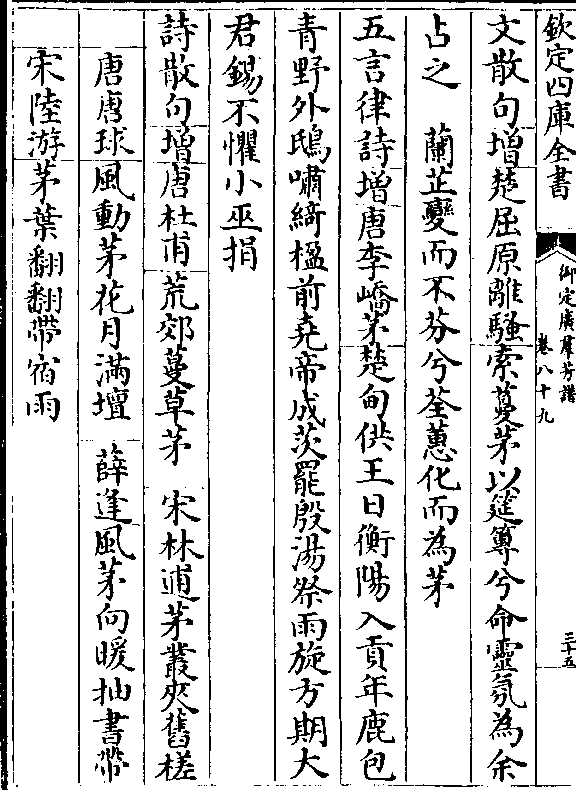 欽定四庫全書
御定廣羣芳譜
卷八十九
三十五
文散句增楚屈原離騷索藑茅以筳篿兮命靈氛為余
占之　蘭芷變而不芬兮荃蕙化而為茅
五言律詩增唐李嶠茅楚甸供王日衡陽入貢年麃包
青野外鴟嘯綺楹前堯帝成茨罷殷湯祭雨旋方期大
君錫不懼小巫捐
詩散句增唐杜甫荒郊蔓草茅　宋林逋茅叢夾舊槎
唐唐球風動茅花月滿壇　薛逢風茅向暖抽書帶
宋陸游茅葉翻翻帶宿雨